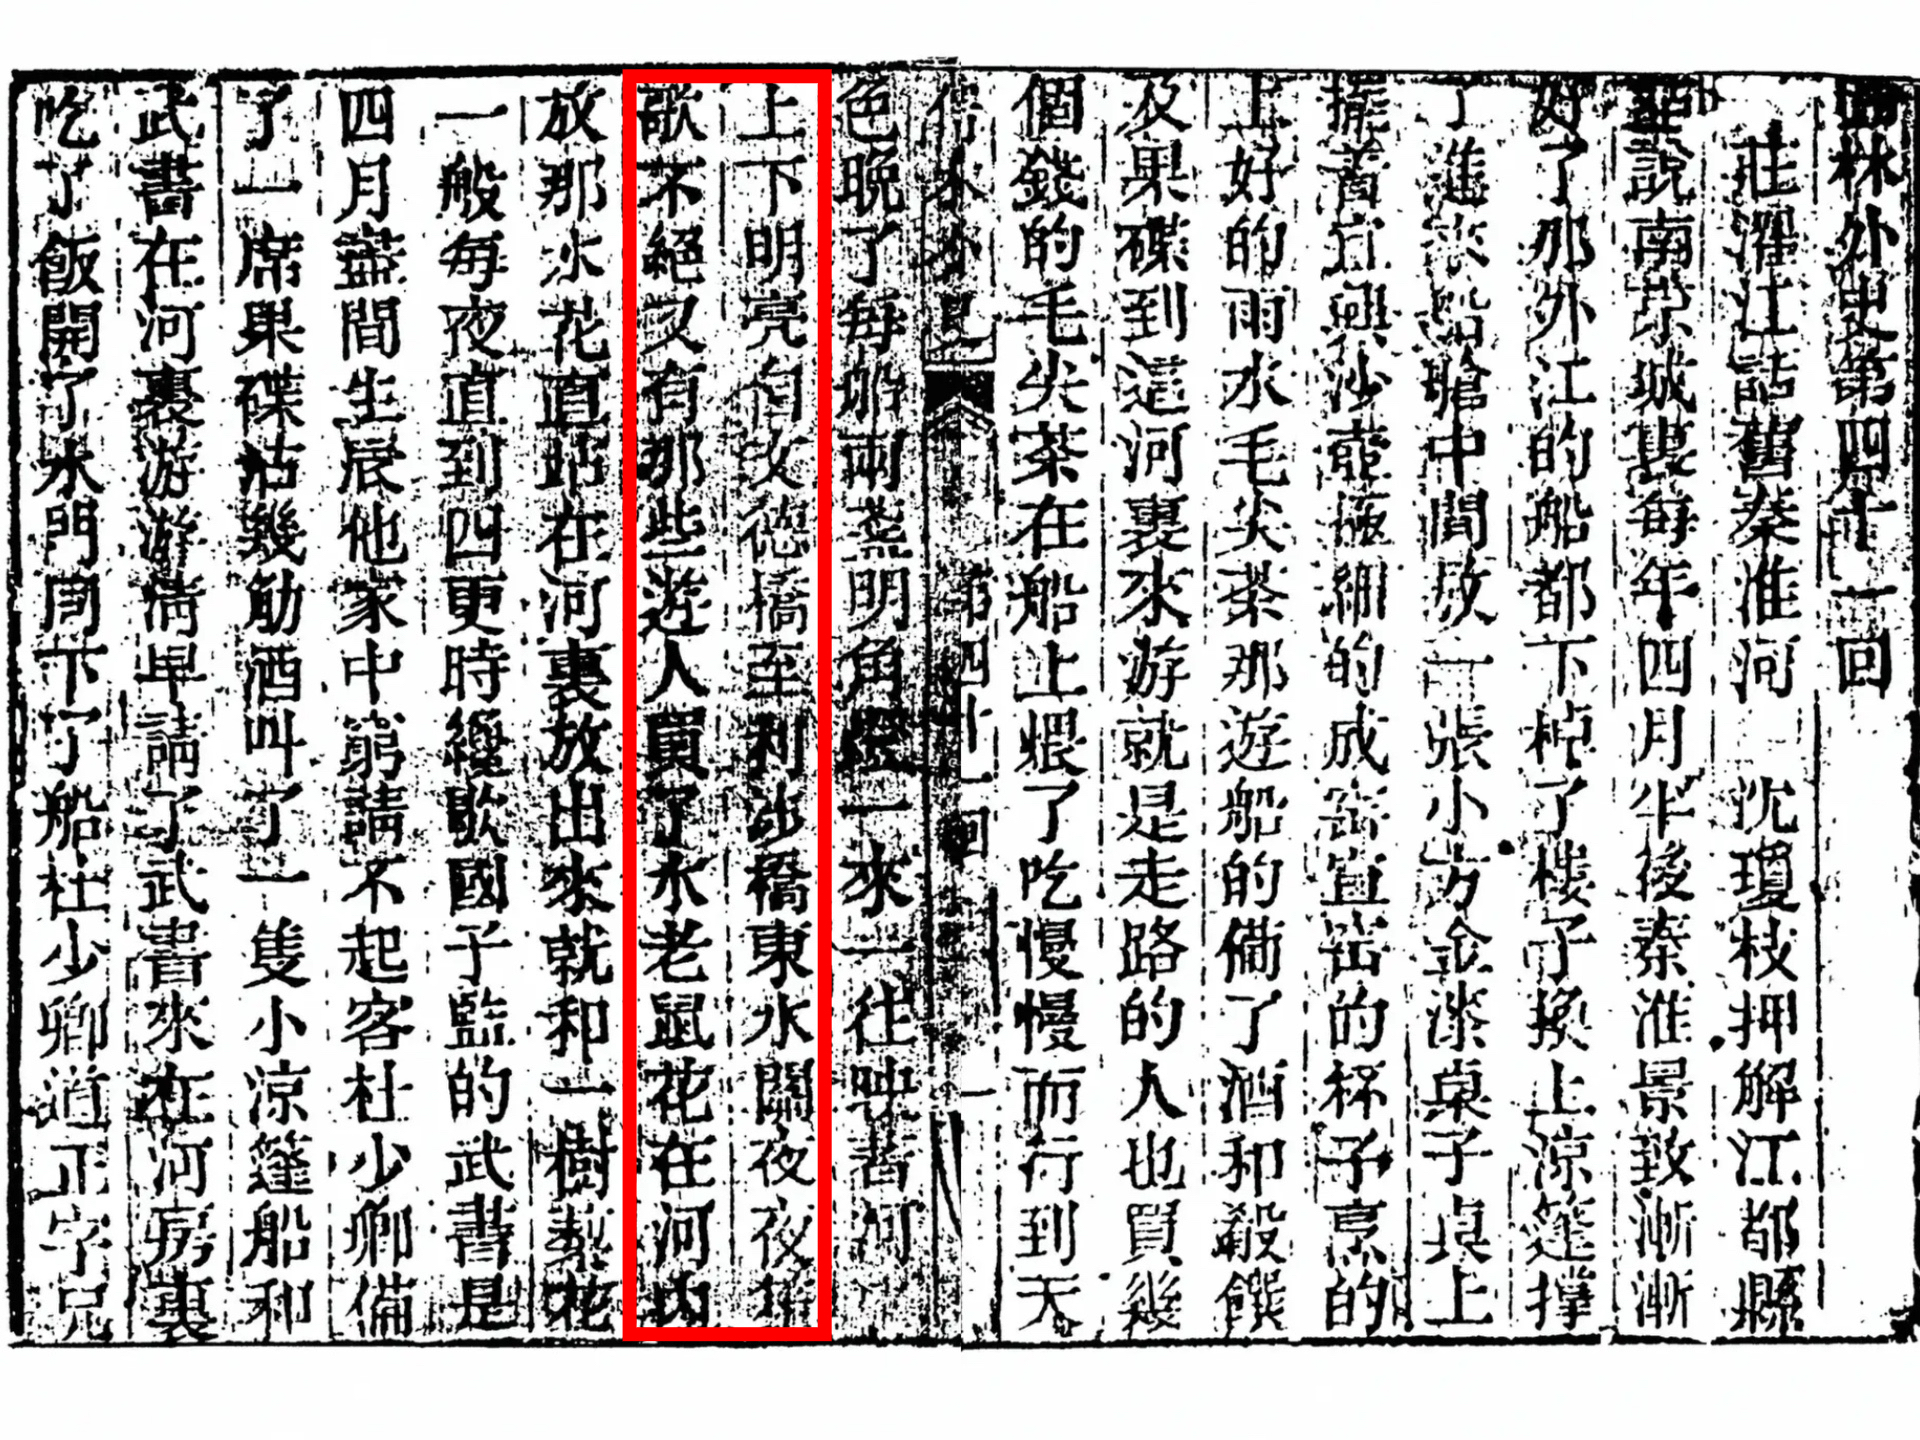 儒林外史第四十一回
莊濯江話舊秦淮河 沈瓊枝押解江都縣
話說南京城裏每年四月半後秦淮景致漸漸
好了那外江的船都下掉了樓子換上凉篷撑
了進來船艙中間放一張小方金漆桌子桌上
擺着宜興沙壺極細的成窑宣窑的杯子烹的
上好的雨水毛尖茶那遊船的備了酒和殽饌
及果碟到這河裏來游就是走路的人也買幾
個錢的毛尖茶在船上煨了吃慢慢而行到天
第四十一回 一
色晚了每船兩盞明角燈一來一往映着河
上下明亮自文德橋至利涉橋東水關夜夜笙
歌不絕又有那些遊人買了水老鼠花在河內
放那水花直站在河裏放出來就和一樹梨花
一般每夜直到四更時纔歇國子監的武書是
四月盡間生辰他家中窮請不起客杜少卿備
了一席果碟沽幾觔酒叫了一隻小凉篷船和
武書在河裏游游清早請了武書來在河房裏
吃了飯開了水門同下了船杜少卿道正字兄